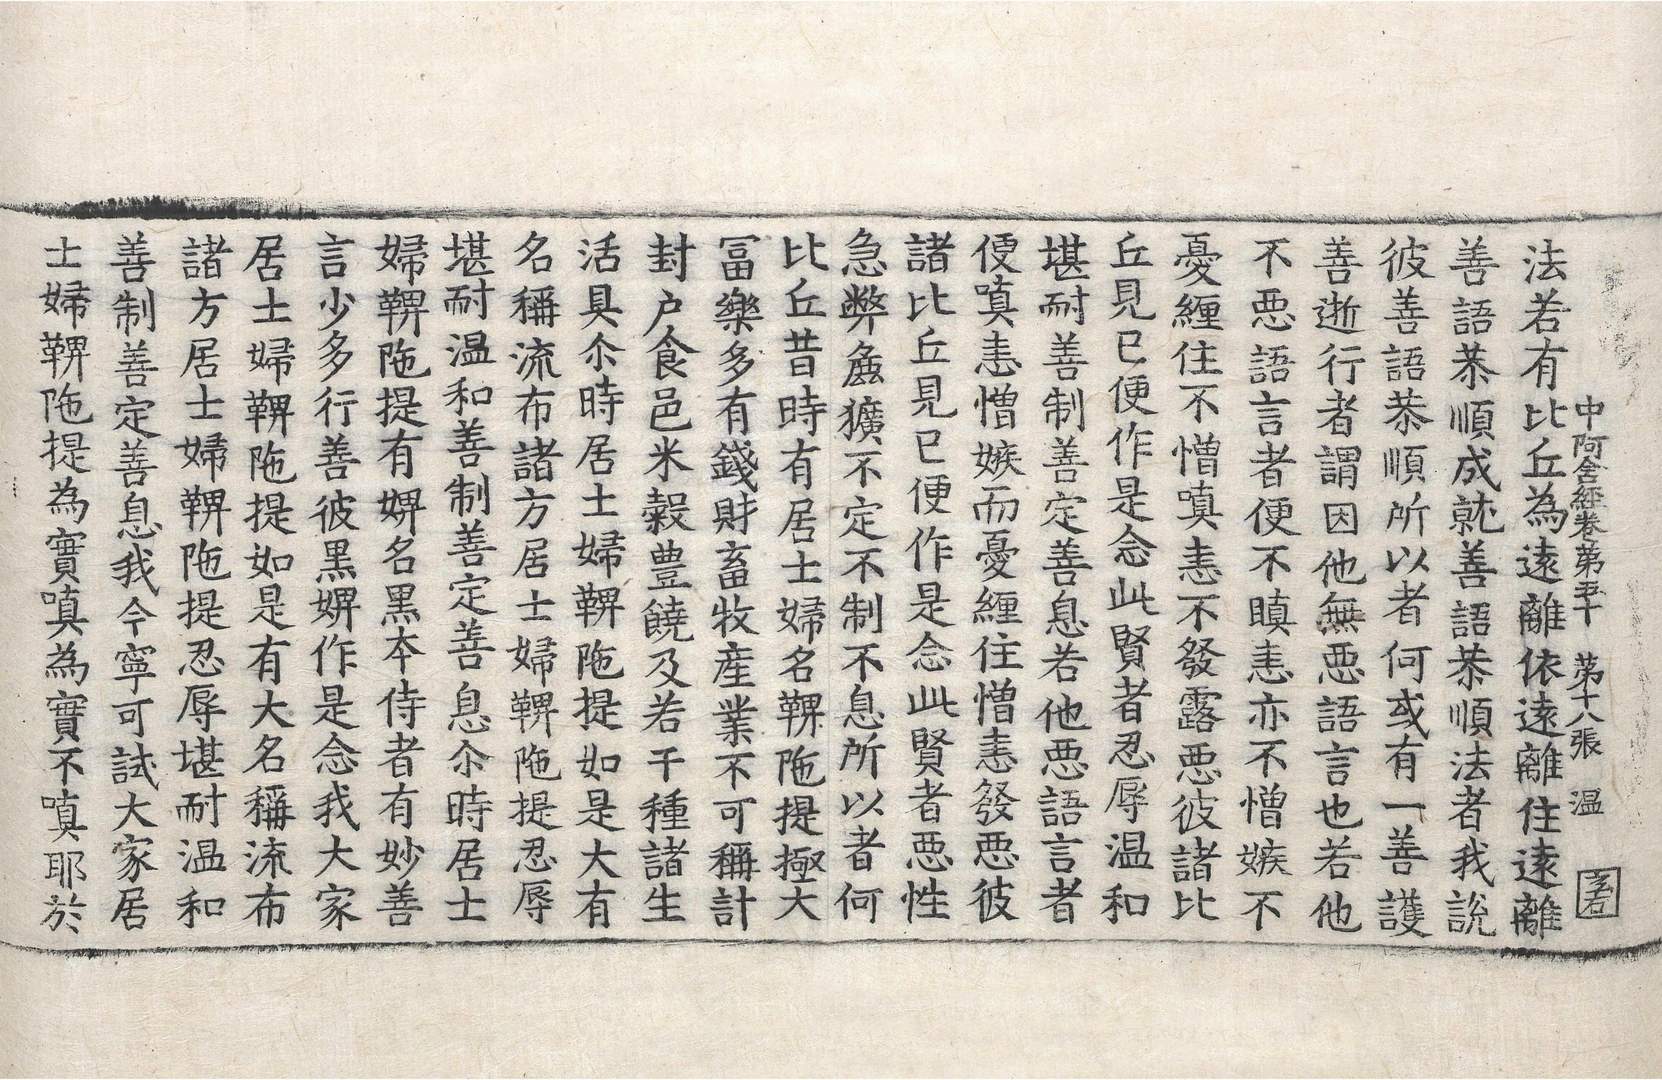 中阿含經卷第五十　第十八張　温
法若有比丘為遠離依遠離住遠離
善語恭順成就善語恭順法者我說
彼善語恭順所以者何或有一善護
善逝行者謂因他無惡語言也若他
不惡語言者便不瞋恚亦不憎嫉不
憂纏住不憎嗔恚不發露惡彼諸比
丘見已便作是念此賢者忍辱温和
堪耐善制善定善息若他惡語言者
便嗔恚憎嫉而憂纏住憎恚發惡彼
諸比丘見已便作是念此賢者惡性
急弊麁獷不定不制不息所以者何
比丘昔時有居士婦名鞞陁提極大
冨樂多有錢財畜牧産業不可稱計
封户食邑米穀豊饒及若干種諸生
活具尒時居士婦鞞陁提如是大有
名稱流布諸方居士婦鞞陁提忍辱
堪耐温和善制善定善息尒時居士
婦鞞陁提有婢名黒本侍者有妙善
言少多行善彼黒婢作是念我大家
居士婦鞞陁提如是有大名稱流布
諸方居士婦鞞陁提忍辱堪耐温和
善制善定善息我今寧可試大家居
士婦鞞陁提為實嗔為實不嗔耶於